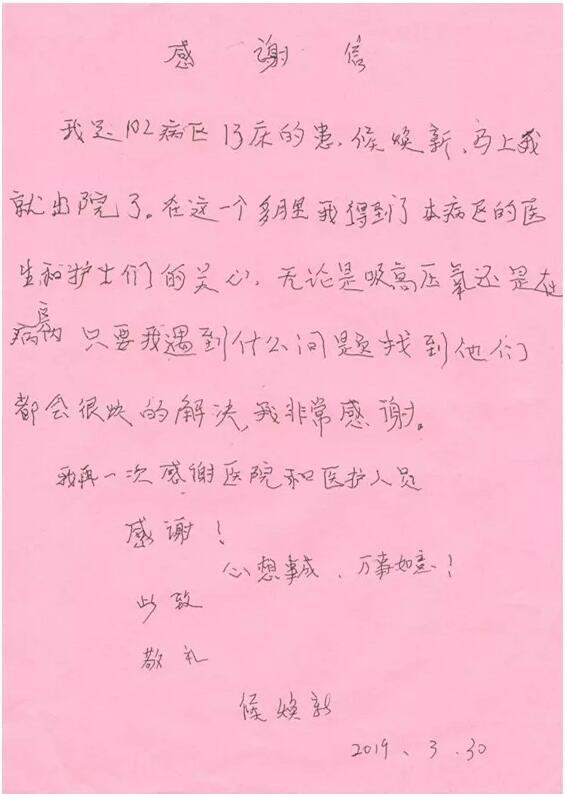 感谢信
我是102病区13床的患，候焕新，马上我
就出院了。在这一个多月里我得到了本病区的医
生和护士们的关心，无论是吸高压氧还是在
病房内 只要我遇到什么问题找到他们
都会很快的解决，我非常感谢。
我再一次感谢医院和医护人员
感谢！
心想事成、万事如意！
此致
敬礼
候焕新
2019、3.30